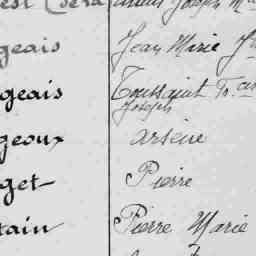 Joseph
geais Jean Marie
geais Toussaint
Joseph
geoux arsène
get Pierre
tain Pierre Marie